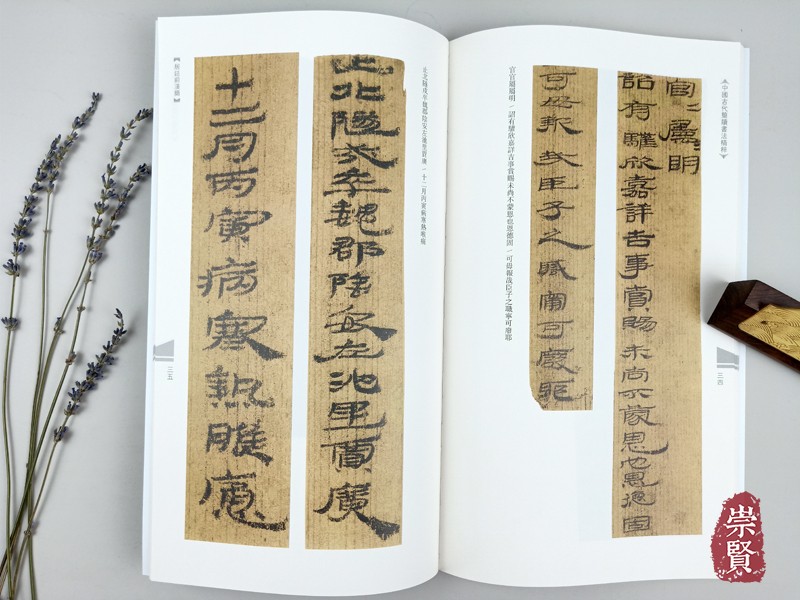 中國古代簡牘書法精粹
三四
官二屬明
詔有驩欣嘉詳吉事賞賜未尚不蒙恩也恩德固
可為報哉臣子之職甯可廢耶
官官屬屬明 詔有驩欣嘉詳吉事賞賜未尚不蒙恩也恩德固 可為報哉臣子之職寧可廢耶
止北隧戍卒魏郡陰安左池里賈廣
十二月丙寅病寒熱喉
止北隧戍卒魏郡陰安左池里賈廣 十二月丙寅病寒熱喉
三五
崇賢